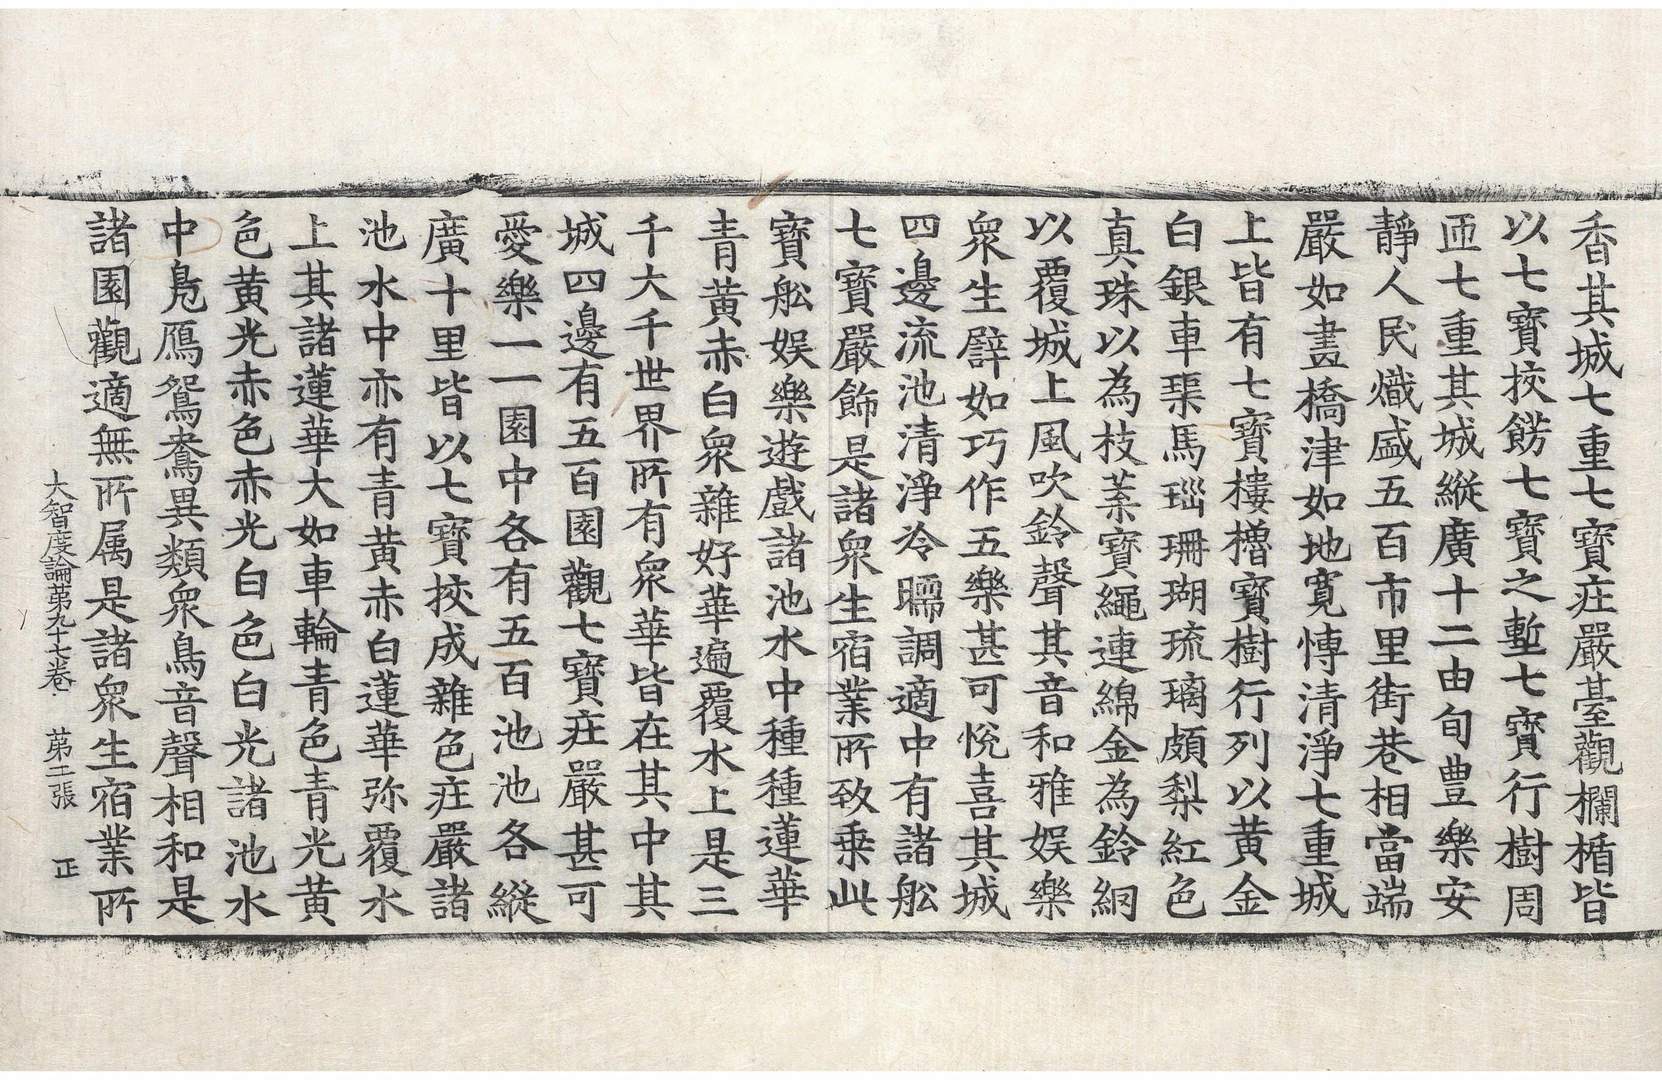 香其城七重七寶莊嚴臺觀欄楯皆
以七寶挍餝七寶之塹七寶行樹周
匝七重其城縱廣十二由旬豊樂安
靜人民熾盛五百市里街巷相當端
嚴如畫橋津如地寬愽清淨七重城
上皆有七寶樓櫓寶樹行列以黃金
白銀車𤦲馬瑙珊瑚琉璃頗梨紅色
真珠以為枝葉寶繩連綿金為鈴網
以覆城上風吹鈴聲其音和雅娛樂
衆生譬如巧作五樂甚可悅喜其城
四邊流池清淨冷暖調適中有諸舩
七寶嚴飾是諸衆生宿業所致乗此
寶舩娛樂遊戲諸池水中種種蓮華
青黃赤白衆雜好華遍覆水上是三
千大千世界所有衆華皆在其中其
城四邊有五百園觀七寶莊嚴甚可
愛樂一一園中各有五百池池各縱
廣十里皆以七寶挍成雜色莊嚴諸
池水中亦有青黃赤白蓮華弥覆水
上其諸蓮華大如車輪青色青光黃
色黃光赤色赤光白色白光諸池水
中鳧鴈鴛鴦異類衆鳥音聲相和是
諸園觀適無所属是諸衆生宿業所
大智度論第九十七卷 第二張 正